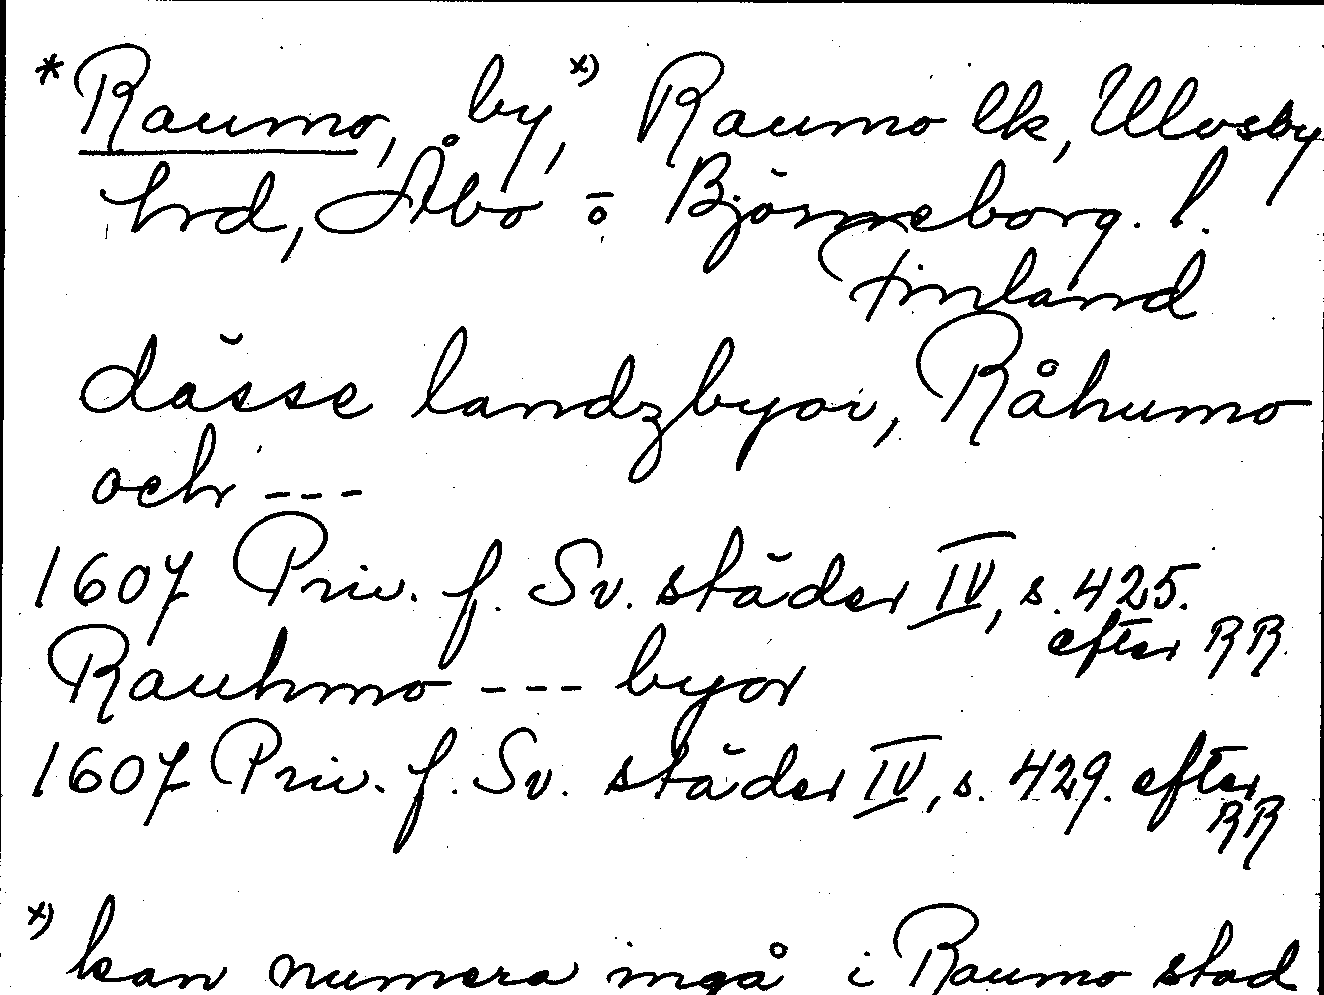 * Raumo, by, x) Raumo lk, Ulvsby
hrd, Åbo o Björneborg. l.
Finland
dässe landzbyar, Råhumo
och ---
1607 Priv. f. Sv. städer IV, s. 425.
efter RR
Rauhmo --- byar
1607 Priv. f. Sv. städer IV, s. 429. efter
RR
x) kan numera ingå i Raumo stad